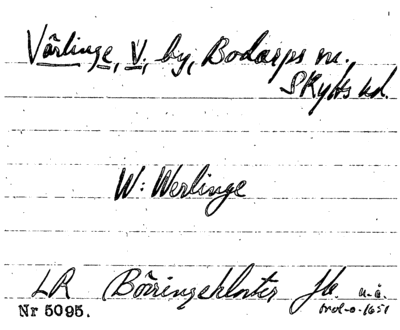 Värlinge, V. by, Bodarps sn.
Skytts hd.
W: Werlinge
LR Börringekloster Jb u.å.
Nr 5095.